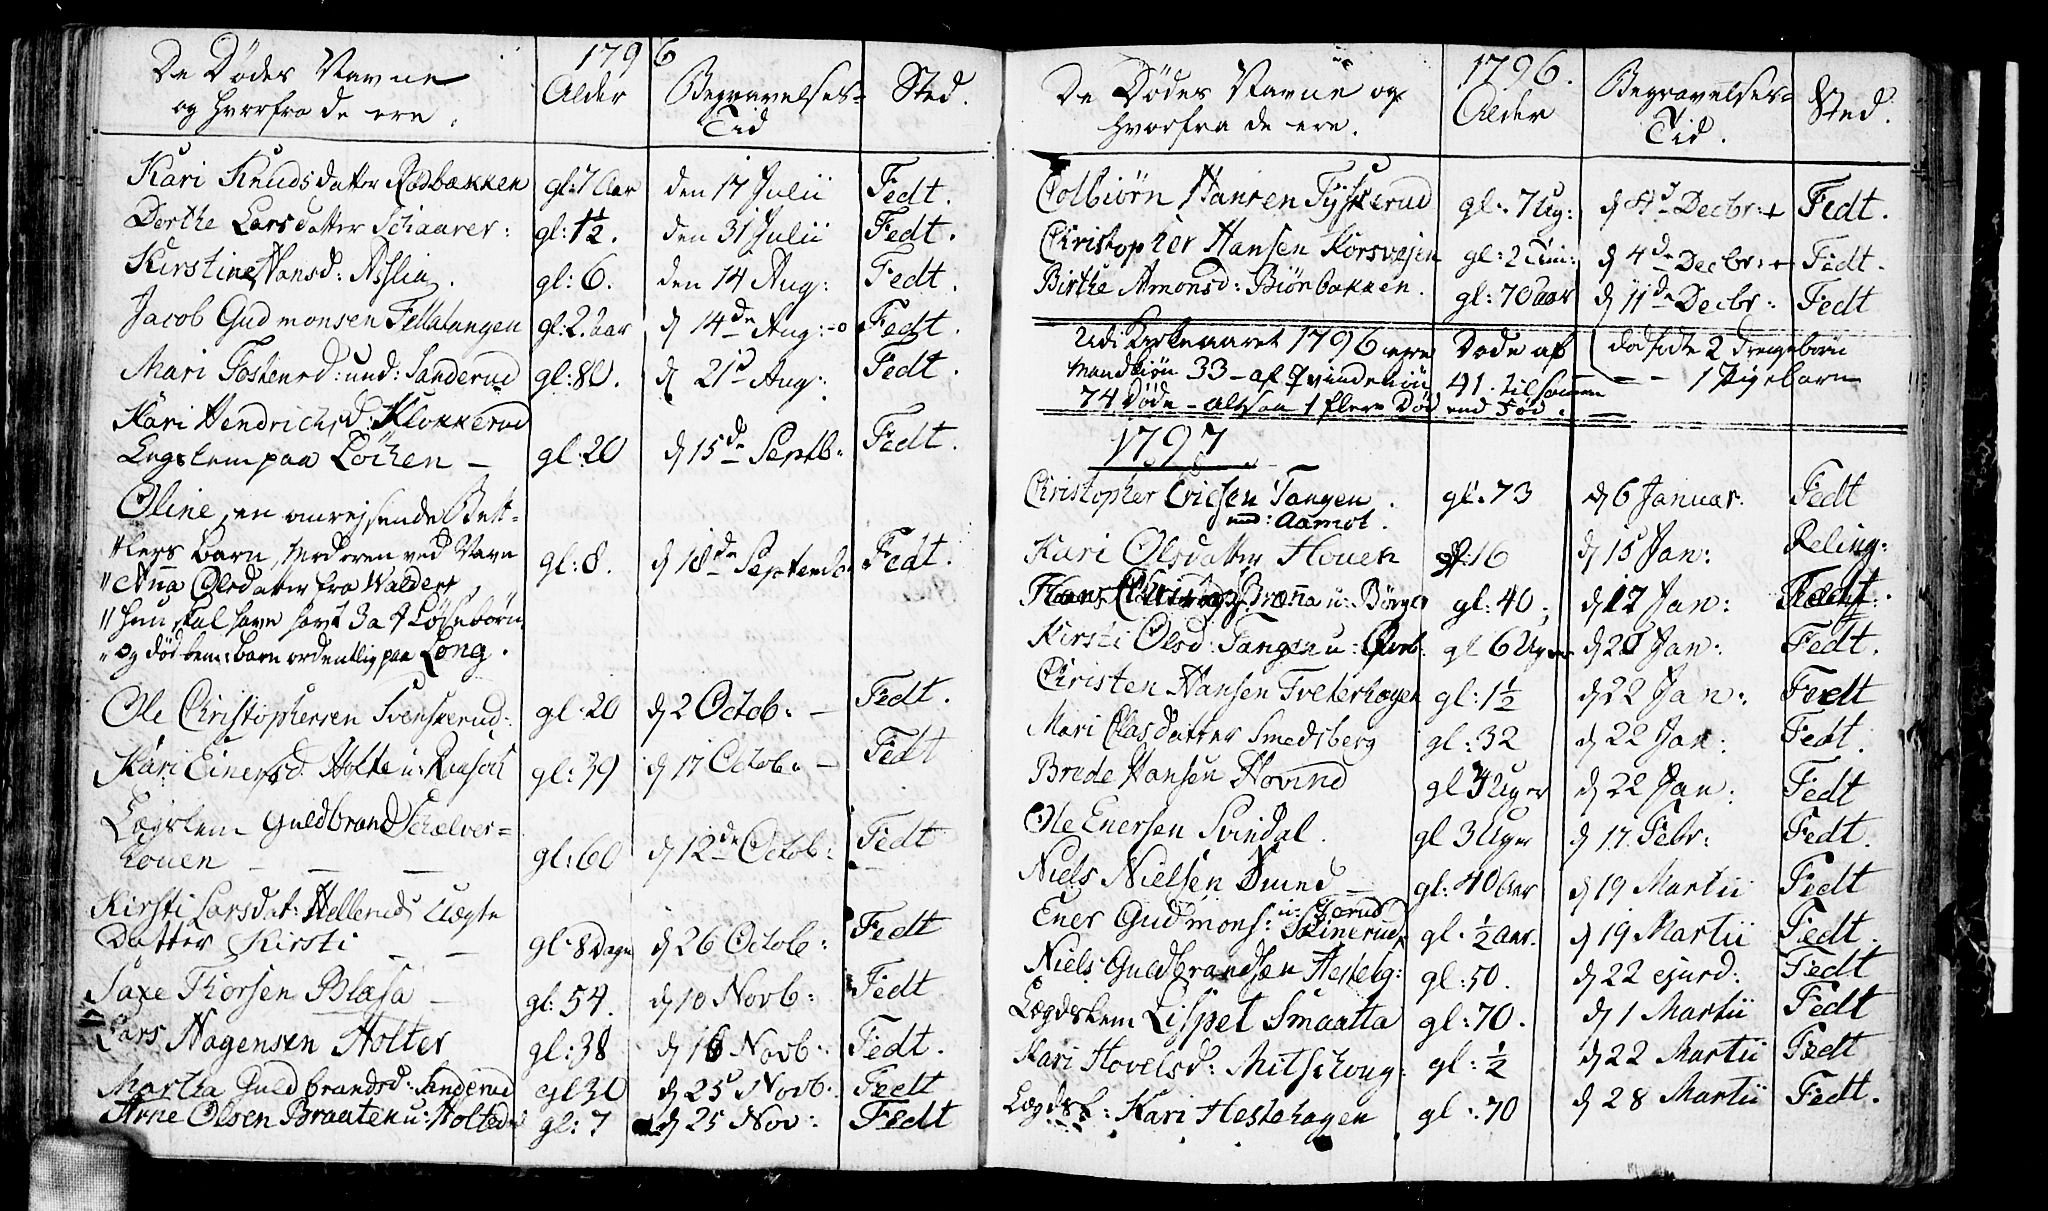 1796
De Dødes Navne Alder Begravelses- Sted.
og hvorfra de ere. Tid
Kari Knudsdatter Rødbakken gl: 7 Aar den 17 Julii Fedt.
Dorthe Larsdatter Schaarer: gl: 1½. den 31 Julii Fedt.
Kirstine Hansd: Asslia. gl: 6. den 14 Aug: Fedt.
Jacob Gudmonsen Fellatangen gl: 2. aar d 14de Aug: Fedt.
Mari Tostensd: und: Sanderud gl: 80. d 21 Aug: Fedt.
Kari Hendrichsd: Klokkerud
Legslem paa Løchen gl: 20 d 15de Septb: Fedt.
Oline, en omreisende Bet-
"lers Barn, Moderen ved Navn gl: 8. d 18de Septemb: Fedt.
"Anna Olsdatter fra Walders
"hun skal have havt 3 a 4 Løsebørn
"og død barn ordentlig paa Long.
Ole Christophersen Svenskerud: gl: 20 d 2 Octob: Fedt.
Kari Einersd. Holte u: gl: 39 d 17 Octob: Fedt
Lægslem Guldbrand Schelver=
houen gl: 60 d 12de Octob: Fedt
Kirsti Larsdat: Hellerud Uægte
Datter Kirsti gl: 8 Dage d 26 Octob: Fedt
Saxe Thorsen Blasa gl: 54. d 10 Novb: Fedt
Lars Hagensen Holter gl: 38 d 16 Novb: Fedt.
Martha Guldbrandsd: Sanderud gl 30 d 25 Novb: Fedt
Arne Olsen Braaten u: Holter gl: 7 d 25 Nov: Fedt
1796.
De Dødes Navne og Alder Begravelses= Sted.
hvorfra de ere. Tid.
Colbiørn Hansen Tyskerud gl: 7 Ug: d 4d Decbr: Fedt.
Christopher Hansen Korsvejen gl: 2 Tim: d 4de Decbr: Fedt.
Birthe Amonsd: Biørbakken. gl: 70 aar d 11de Decbr: Fedt
Udi Kirkeaaret 1796 ere Døde af dødfødte 2 Drengebørn
Mandkiøn 33 - af Qvindekiøn 41. tilsamen 1 Pigebarn
74 Døde - altsaa 1 flere Død end Fød.
1797
Christopher Ericsen Tangen gl: 73 d 6 Januar. Fedt
und: Aamot.
Kari Olsdatter Houen gl: 16 d 15 Jan: Reling:
Hans Brænna u: Børger gl: 40; d 17 Jan: Fedt.
Kirsti Olsd: Tangen u: gl 6 Uger d 20 Jan: Fedt.
Christen Hansen Treterhagen gl: 1½ d 22 Jan: Fedt
Mari Clasdatter Smedsberg gl: 32 d 22 Jan: Fedt.
Brede Hansen Hovind gl 4 Uger d 22 Jan: Fedt
Ole Enersen Svindal. gl 3 Uger d 17. Febr: Fedt.
Niels Nielsen Smed gl: 40 Aar d 19 Martii Fedt
Ener Gudmons: Skinerud gl: ½ Aar. d 19 Martii Fedt.
Niels Guldbrandsen Hestehg: gl: 50. d 22 ejusd: Fedt
Lægdslem Lispet Smaatta gl: 70. d 1 Martii Fedt
Kari Hovelsd: Mitschoug: gl: ½ d 22 Martii Fedt
Lægdsl: Kari Hestehagen gl: 70 d 28 Martii Fedt.